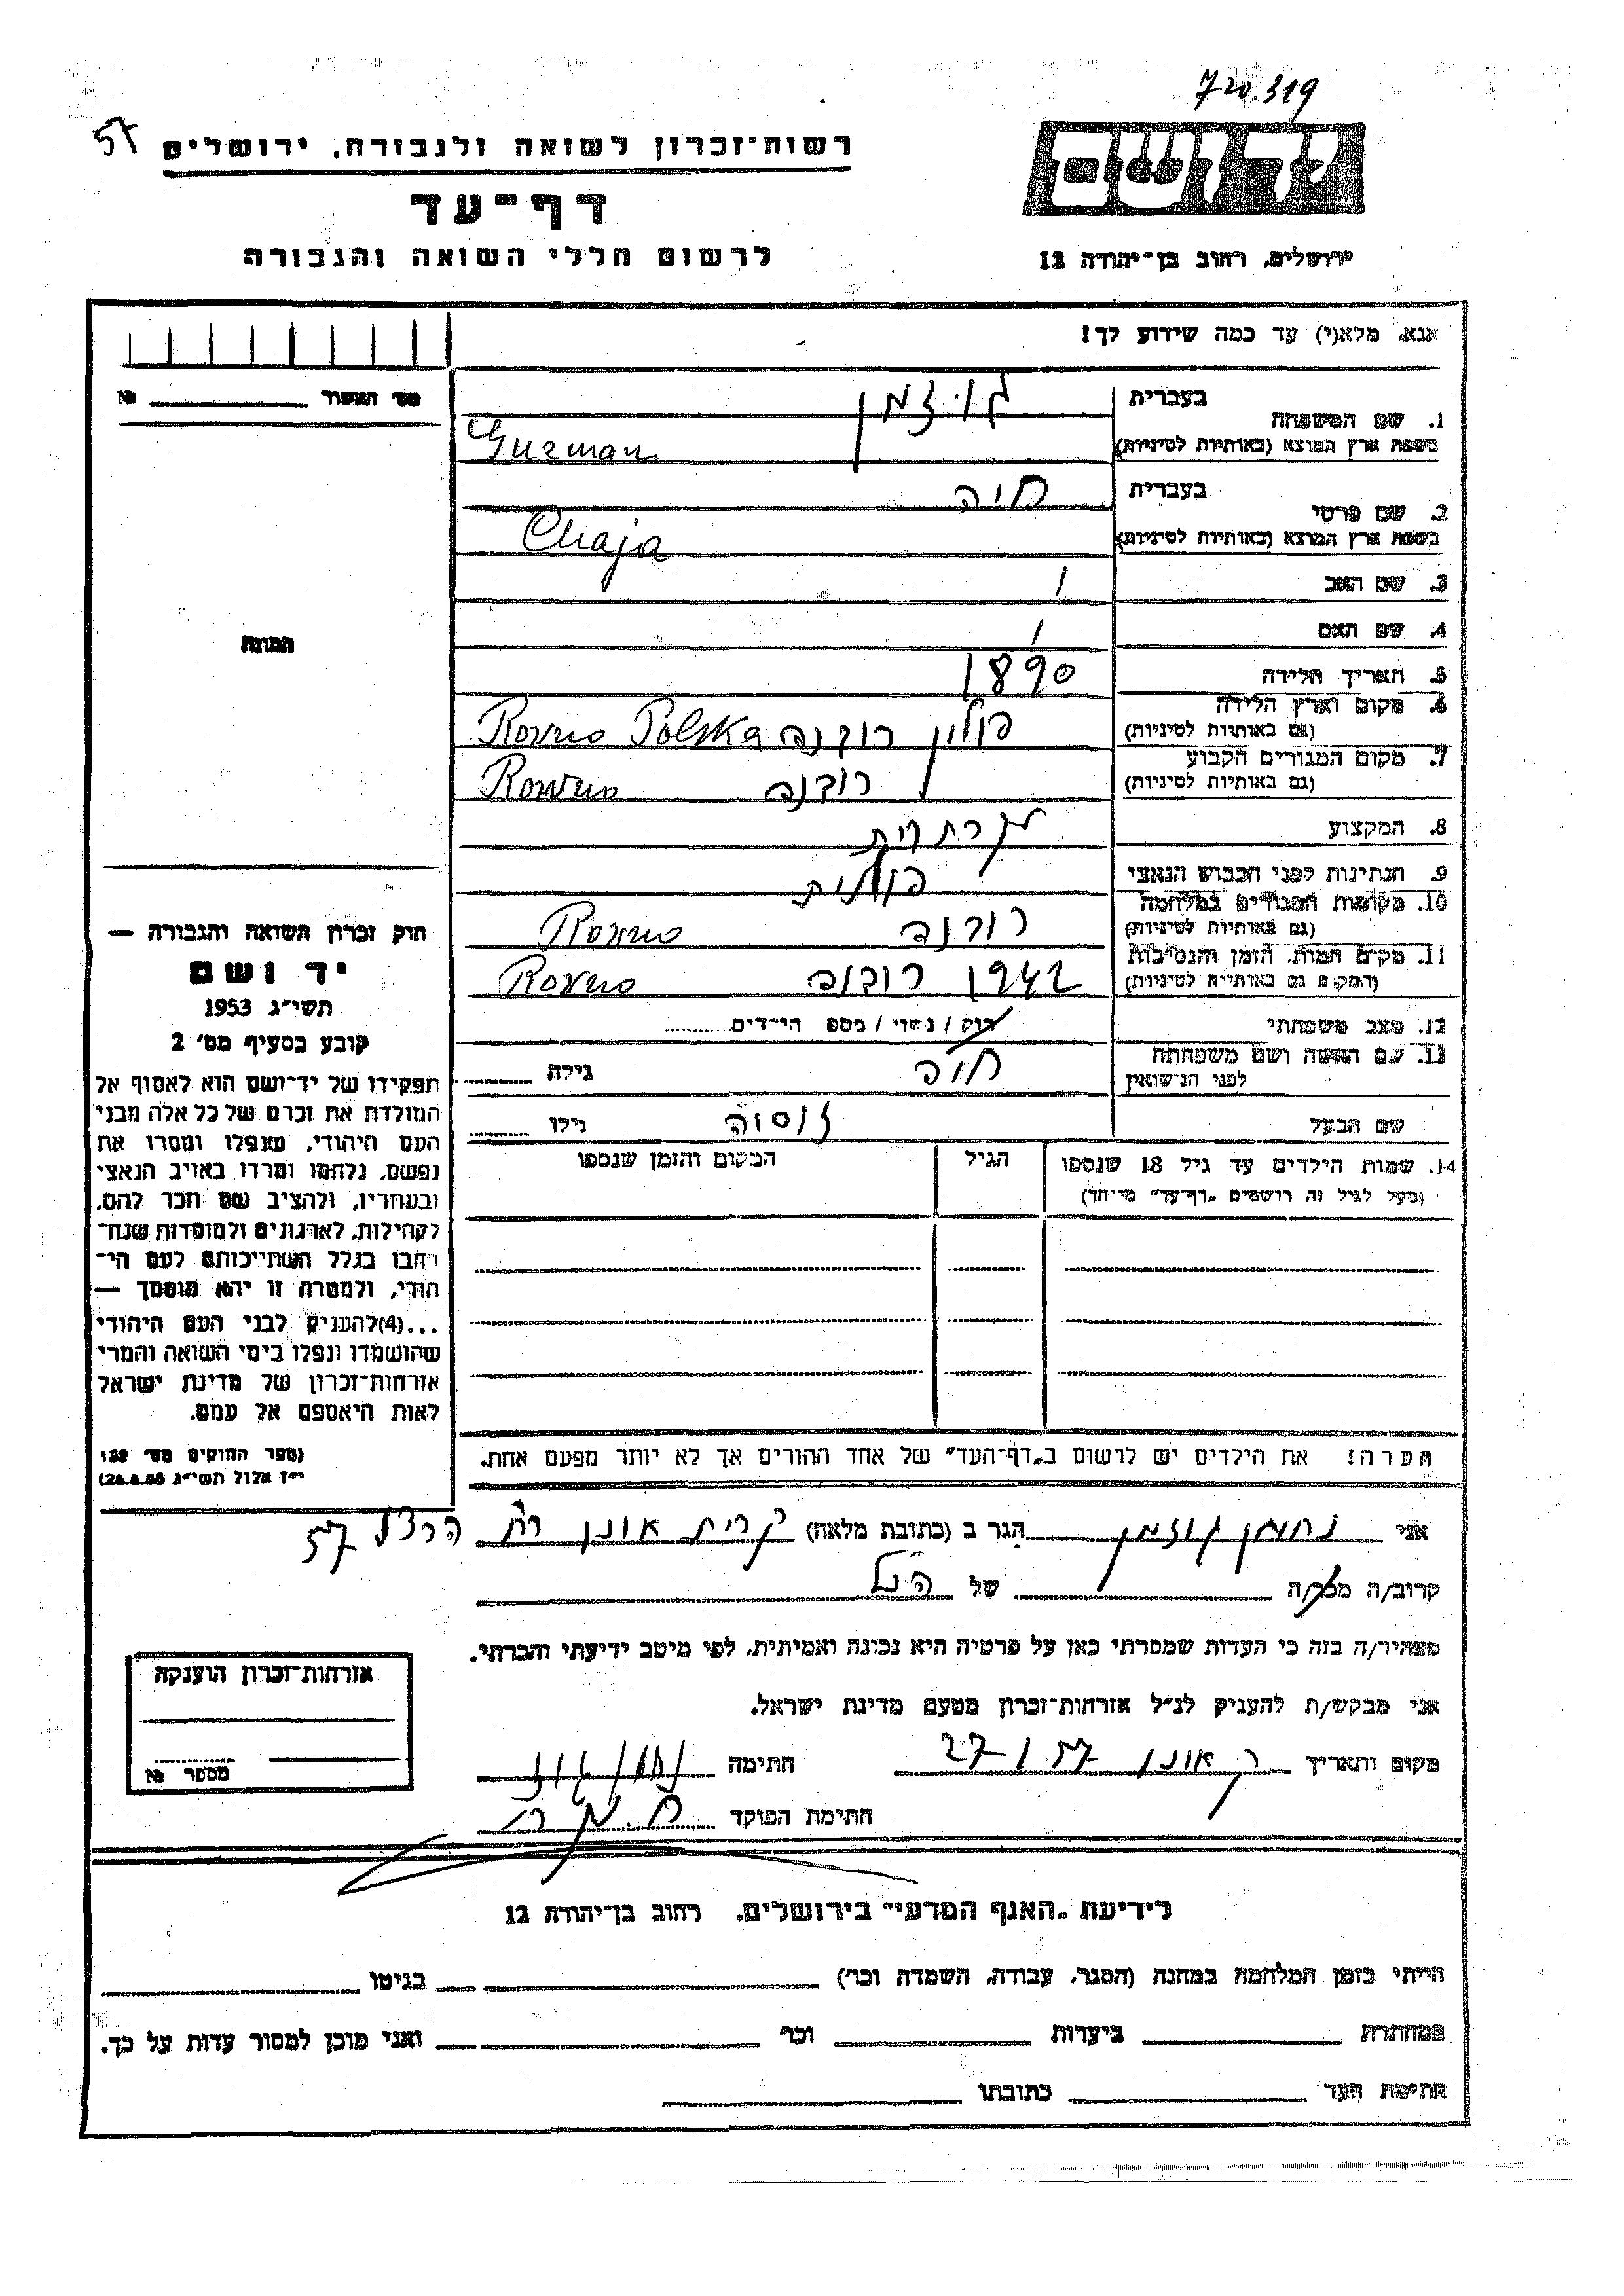 720.319
57
רשות־זכרון לשואה ולגבורה, ירושלים
דף־עד
לרשום חללי השואה והגבורה
ירושלים, רחוב בן־יהודה 12
אנא, מלא(י) עד כמה שידוע לך!
מס׳ האשור № 
1. שם המשפחה בעברית גוזמן
בשפת ארץ המוצא (באותיות לטיניות) Guzman
2. שם פרטי בעברית חיה
בשפת ארץ המוצא (באותיות לטיניות) Chaja
3. שם האב /
4. שם האם /
התמונה
5. תאריך הלידה 1890
6. מקום וארץ הלידה (גם באותיות לטיניות) פולין רובנה Rovno Polska
7. מקום המגורים הקבוע (גם באותיות לטיניות) רובנה Rovno
8. המקצוע
9. הנתינות לפני הכבוש הנאצי פולנית
10. מקומות המגורים במלחמה (גם באותיות לטיניות) רובנה Rovno
11. מקום המות, הזמן והנסיבות (המקום גם באותיות לטיניות) 1942 רובנה Rovno
12. מצב משפחתי רווק / נשוי / מספר הילדים
13. שם האשה ושם משפחתה לפני הנישואין חיה גילה
שם הבעל גילו
14. שמות הילדים עד גיל 18 שנספו הגיל המקום והזמן שנספו
(מעל לגיל זה רושמים „דף־עד״ מיוחד)
חוק זכרון השואה והגבורה —
יד ושם
תשי״ג 1953
קובע בסעיף מס׳ 2
תפקידו של יד־ושם הוא לאסוף אל
המולדת את זכרם של כל אלה מבני
העם היהודי, שנפלו ומסרו את
נפשם, נלחמו ומרדו באויב הנאצי
ובעוזריו, ולהציב שם וזכר להם,
לקהילות, לארגונים ולמוסדות שנח־
רבו בגלל השתייכותם לעם הי־
הודי, ולמטרה זו יהא מוסמך —
...(4)להעניק לבני העם היהודי
שהושמדו ונפלו בימי השואה והמרי
אזרחות־זכרון של מדינת ישראל
לאות היאספם אל עמם.
(ספר החוקים מס׳ 132,
י״ז אלול תשי״ג
הערה! את הילדים יש לרשום ב„דף־העד״ של אחד ההורים אך לא יותר מפעם אחת.
אני נחמן גוזמן הגר ב (כתובת מלאה) קרית אונו רח הרצל 57
קרוב/ה מכר/ה של הנל
מצהיר/ה בזה כי העדות שמסרתי כאן על פרטיה היא נכונה ואמיתית, לפי מיטב ידיעתי והכרתי.
אני מבקש/ת להעניק לנ״ל אזרחות־זכרון מטעם מדינת ישראל.
אזרחות־זכרון הוענקה
מספר №
מקום ותאריך ק אונו 27 1 57 חתימה
חתימת הפוקד
לידיעת „האגף המדעי״ בירושלים, רחוב בן־יהודה 12
הייתי בזמן המלחמה במחנה (הסגר, עבודה, השמדה וכו׳) בגיטו
במחתרת ביערות וכו׳ ואני מוכן למסור עדות על כך.
חתימת העד כתובתו